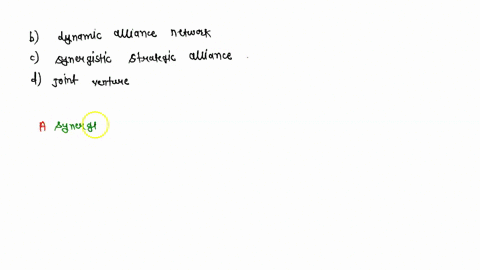 b) dynamic alliance network
c) synergistic strategic alliance .
d) joint venture
A synergi